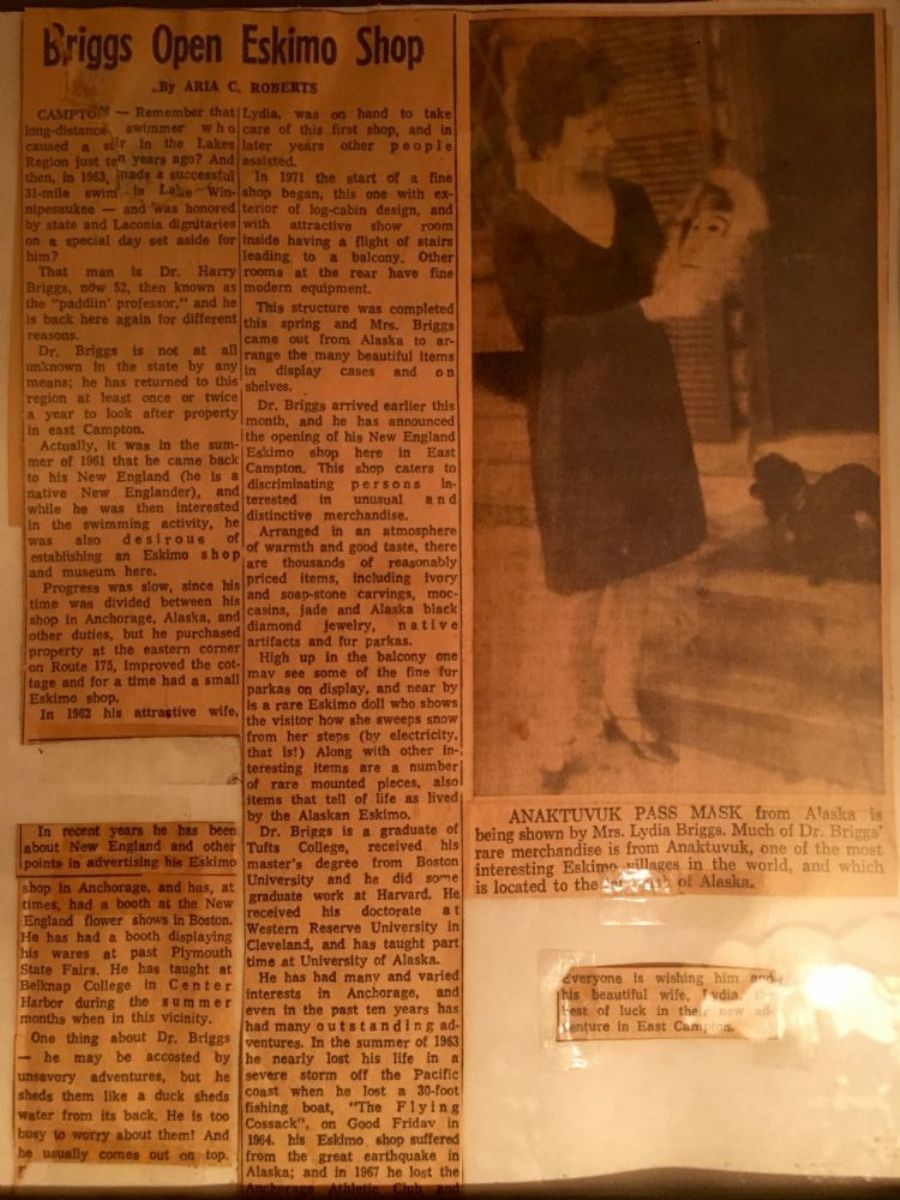 Briggs Open Eskimo Shop
By ARIA C. ROBERTS
CAMPTON — Remember that
long-distance swimmer who
caused a stir in the Lakes
Region just ten years ago? And
then, in 1963, made a successful
31-mile swim in Lake Win-
nipesaukee — and was honored
by state and Laconia dignitaries
on a special day set aside for
him?
That man is Dr. Harry
Briggs, now 52, then known as
the "paddlin' professor," and he
is back here again for different
reasons.
Dr. Briggs is not at all
unknown in the state by any
means; he has returned to this
region at least once or twice
a year to look after property
in east Campton.
Actually, it was in the sum-
mer of 1961 that he came back
to his New England (he is a
native New Englander), and
while he was then interested
in the swimming activity, he
was also desirous of
establishing an Eskimo shop
and museum here.
Progress was slow, since his
time was divided between his
shop in Anchorage, Alaska, and
other duties, but he purchased
property at the eastern corner
on Route 175, improved the cot-
tage and for a time had a small
Eskimo shop.
In 1962 his attractive wife,
Lydia, was on hand to take
care of this first shop, and in
later years other people
assisted.
In 1971 the start of a fine
shop began, this one with ex-
terior of log-cabin design, and
with attractive show room
inside having a flight of stairs
leading to a balcony. Other
rooms at the rear have fine
modern equipment.
This structure was completed
this spring and Mrs. Briggs
came out from Alaska to ar-
range the many beautiful items
in display cases and on
shelves.
Dr. Briggs arrived earlier this
month, and he has announced
the opening of his New England
Eskimo shop here in East
Campton. This shop caters to
discriminating persons in-
terested in unusual and
distinctive merchandise.
Arranged in an atmosphere
of warmth and good taste, there
are thousands of reasonably
priced items, including ivory
and soap-stone carvings, moc-
casins, jade and Alaska black
diamond jewelry, native
artifacts and fur parkas.
High up in the balcony one
may see some of the fine fur
parkas on display, and near by
is a rare Eskimo doll who shows
the visitor how she sweeps snow
from her steps (by electricity,
that is!) Along with other in-
teresting items are a number
of rare mounted pieces, also
items that tell of life as lived
by the Alaskan Eskimo.
Dr. Briggs is a graduate of
Tufts College, received his
master's degree from Boston
University and he did some
graduate work at Harvard. He
received his doctorate at
Western Reserve University in
Cleveland, and has taught part
time at University of Alaska.
He has had many and varied
interests in Anchorage, and
even in the past ten years has
had many outstanding ad-
ventures. In the summer of 1963
he nearly lost his life in a
severe storm off the Pacific
coast when he lost a 30-foot
fishing boat, "The Flying
Cossack", on Good Friday in
1964. his Eskimo shop suffered
from the great earthquake in
Alaska; and in 1967 he lost the
Anchorage Athletic Club and
In recent years he has been
about New England and other
points in advertising his Eskimo
shop in Anchorage, and has, at
times, had a booth at the New
England flower shows in Boston.
He has had a booth displaying
his wares at past Plymouth
State Fairs. He has taught at
Belknap College in Center
Harbor during the summer
months when in this vicinity.
One thing about Dr. Briggs
— he may be accosted by
unsavory adventures, but he
sheds them like a duck sheds
water from its back. He is too
busy to worry about them! And
he usually comes out on top.
ANAKTUVUK PASS MASK from Alaska is
being shown by Mrs. Lydia Briggs. Much of Dr. Briggs'
rare merchandise is from Anaktuvuk, one of the most
interesting Eskimo villages in the world, and which
is located to the of Alaska.
Everyone is wishing him and
his beautiful wife, Lydia the
best of luck in their new ad-
venture in East Campton.